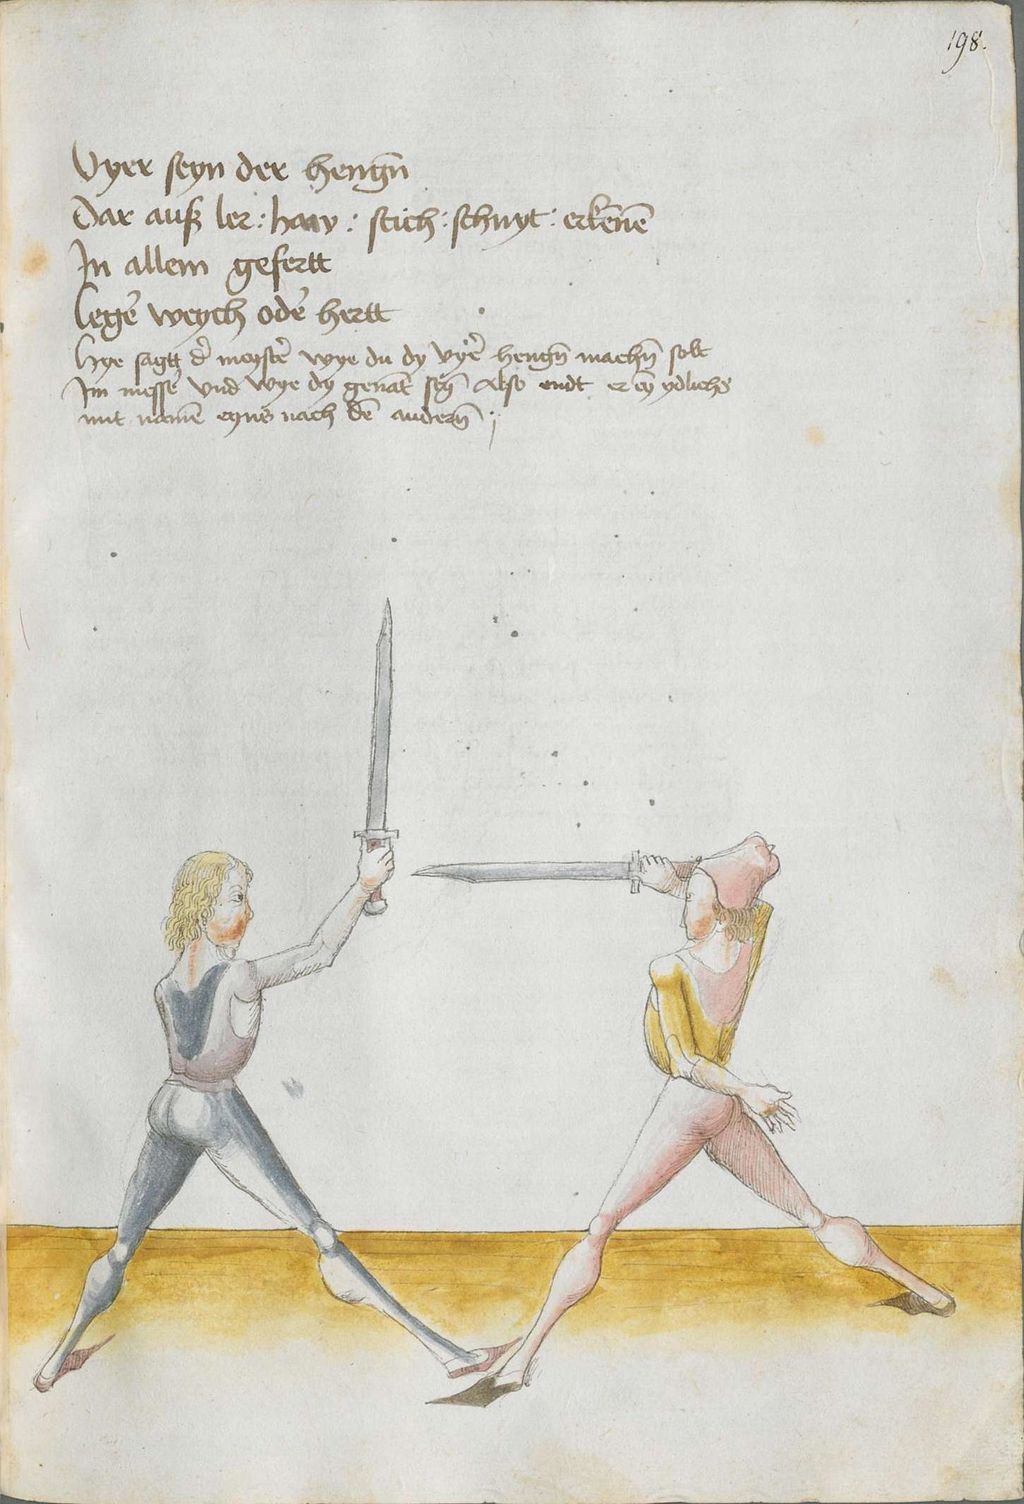 198.
Vyer seyn der hengn̄
Dar auß ler : haw : stich : schnyt : erkēnē
In allem gefertt
Legē weych odē hertt
Hye sagtt d̄ meystē wye du dy vyē hengn̄ machn̄ solt
Im messē vnd wye dy genāt seȳ Also endt er eȳ ydlichs
mit namē eyns nach dē andern̄ ;